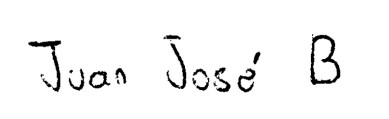 Juan José B